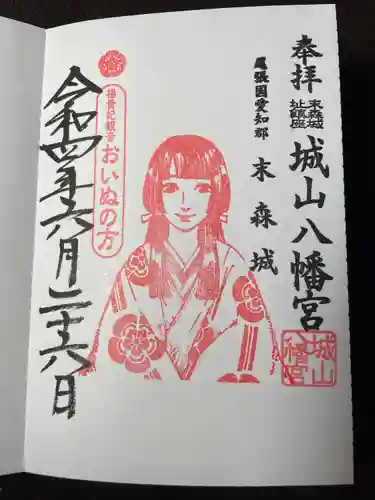 奉拝
末森城
址鎮座
城山八幡宮
尾張国愛知郡
末森城
楊貴妃観音
おいぬの方
令和四年六月二十六日
城山
八幡宮